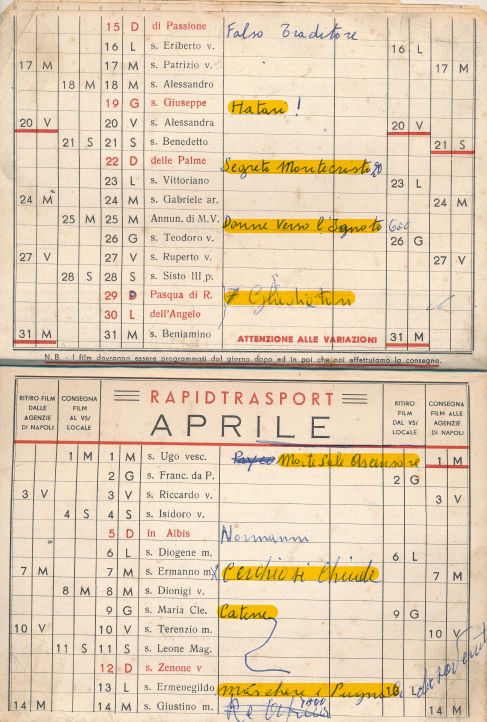 15 D di Passione Falso Traditore
16 L s. Eriberto v. 16 L
17 M 17 M s. Patrizio v. 17 M
18 M 18 M s. Alessandro
19 G s. Giuseppe Hatari !
20 V 20 V s. Alessandra 20 V
21 S 21 S s. Benedetto 21 S
22 D delle Palme Segreto Montecristo
23 L s. Vittoriano 23 L
24 M 24 M s. Gabriele ar. 24 M
25 M 25 M Annun. di M.V. Donne verso l'Ignoto
26 G s. Teodoro v. 26 G
27 V 27 V s. Ruperto v. 27 V
28 S 28 S s. Sisto III p.
29 D Pasqua di R.
30 L dell'Angelo
31 M 31 M s. Beniamino ATTENZIONE ALLE VARIAZIONI 31 M
N. B. - I film dovranno essere programmati dal giorno dopo ed in poi che noi effettuiamo la consegna.
RITIRO FILM DALLE AGENZIE DI NAPOLI
CONSEGNA FILM AL VS/ LOCALE
RAPIDTRASPORT
APRILE
RITIRO FILM DAL VS/ LOCALE
CONSEGNA FILM ALLE AGENZIE DI NAPOLI
1 M 1 M s. Ugo vesc. Morte Sale Ascensore 1 M
2 G s. Franc. da P. 2 G
3 V 3 V s. Riccardo v. 3 V
4 S 4 S s. Isidoro v.
5 D in Albis Normanni
6 L s. Diogene m. 6 L
7 M 7 M s. Ermanno m. Cerchio si Chiude 7 M
8 M 8 M s. Dionigi v.
9 G s. Maria Cle. Catene 9 G
10 V 10 V s. Terenzio m. 10 V
11 S 11 S s. Leone Mag.
12 D s. Zenone v
13 L s. Ermenegildo Maschere e Pugnali 13 L
14 M 14 M s. Giustino m. 14 M